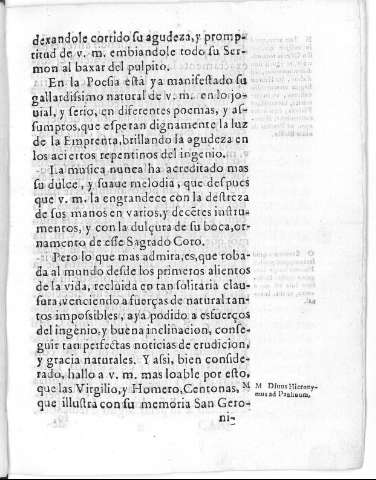 dexandole corrido su agudeza, y promp-
titud de v. m. embiandole todo su Ser-
mon al baxar del pulpito.
En la Poesia està ya manifestado su
gallardissimo natural de v. m. en lo jo-
uial, y serio, en diferentes poemas, y as-
sumptos, que esperan dignamente la luz
de la Emprenta, brillando la agudeza en
los aciertos repentinos del ingenio.
La musica nunca ha acreditado mas
su dulce, y suaue melodia, que despues
que v. m. la engrandece con la destreza
de sus manos en varios, y decẽtes instru-
mentos, y con la dulçura de su boca, or-
namento de esse Sagrado Coro.
Pero lo que mas admira, es, que roba-
da al mundo desde los primeros alientos
de la vida, recluida en tan solitaria clau-
sura, venciendo a fuerças de natural tan-
tos impossibles, aya podido a esfuerços
del ingenio, y buena inclinacion, conse-
guir tan perfectas noticias de erudicion,
y gracia naturales. Y assi, bien conside-
rado, hallo a v. m. mas loable por esto,
que las Virgilio, y Homero, Centonas, M
que illustra con su memoria San Gero-
ni-
M Diuus Hierony-
mus ad Paulinum,